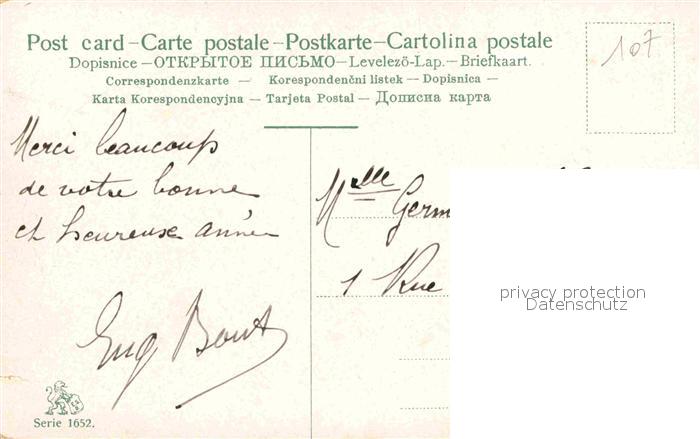 Post card – Carte postale – Postkarte – Cartolina postale
Dopisnice – ОТКРЫТОЕ ПИСЬМО – Levelező-Lap. – Briefkaart.
Correspondenzkarte – Korespondenční listek – Dopisnica –
Karta Korespondencyjna – Tarjeta Postal – Дописна карта
107
Merci beaucoup
de votre bonne
et heureuse année
Eug
Mlle Germ
1 Rue
privacy protection
Datenschutz
Serie 1652.